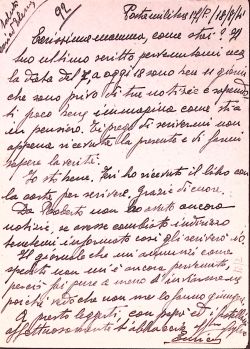 92
Posta militare
Carissima mamma, come stai? Il
tuo ultimo scritto pervenutomi
la data del 7, a oggi 18 sono ben 11 giorni
che sono privo di tue notizie e
ti poco bene immagina come stia in
pensiero. Ti prego di scrivermi non
appena ricevuta la presente e di farmi
sapere la verità.
Io sto bene. Ieri ho ricevuto il libro con
la carta per scrivere, grazie di cuore.
Da Roberto non ho avuto ancora
notizie, se avesse cambiato indirizzo
tenetemi informato così gli scriverò io.
Il giornale che mi annunci come
spedito non mi è ancora pervenuto
perciò fai pure a meno di
poiché vedo che non me lo fanno giungere.
A presto leggerti, con papà ed i fratelli
affettuosamente ti abbraccia